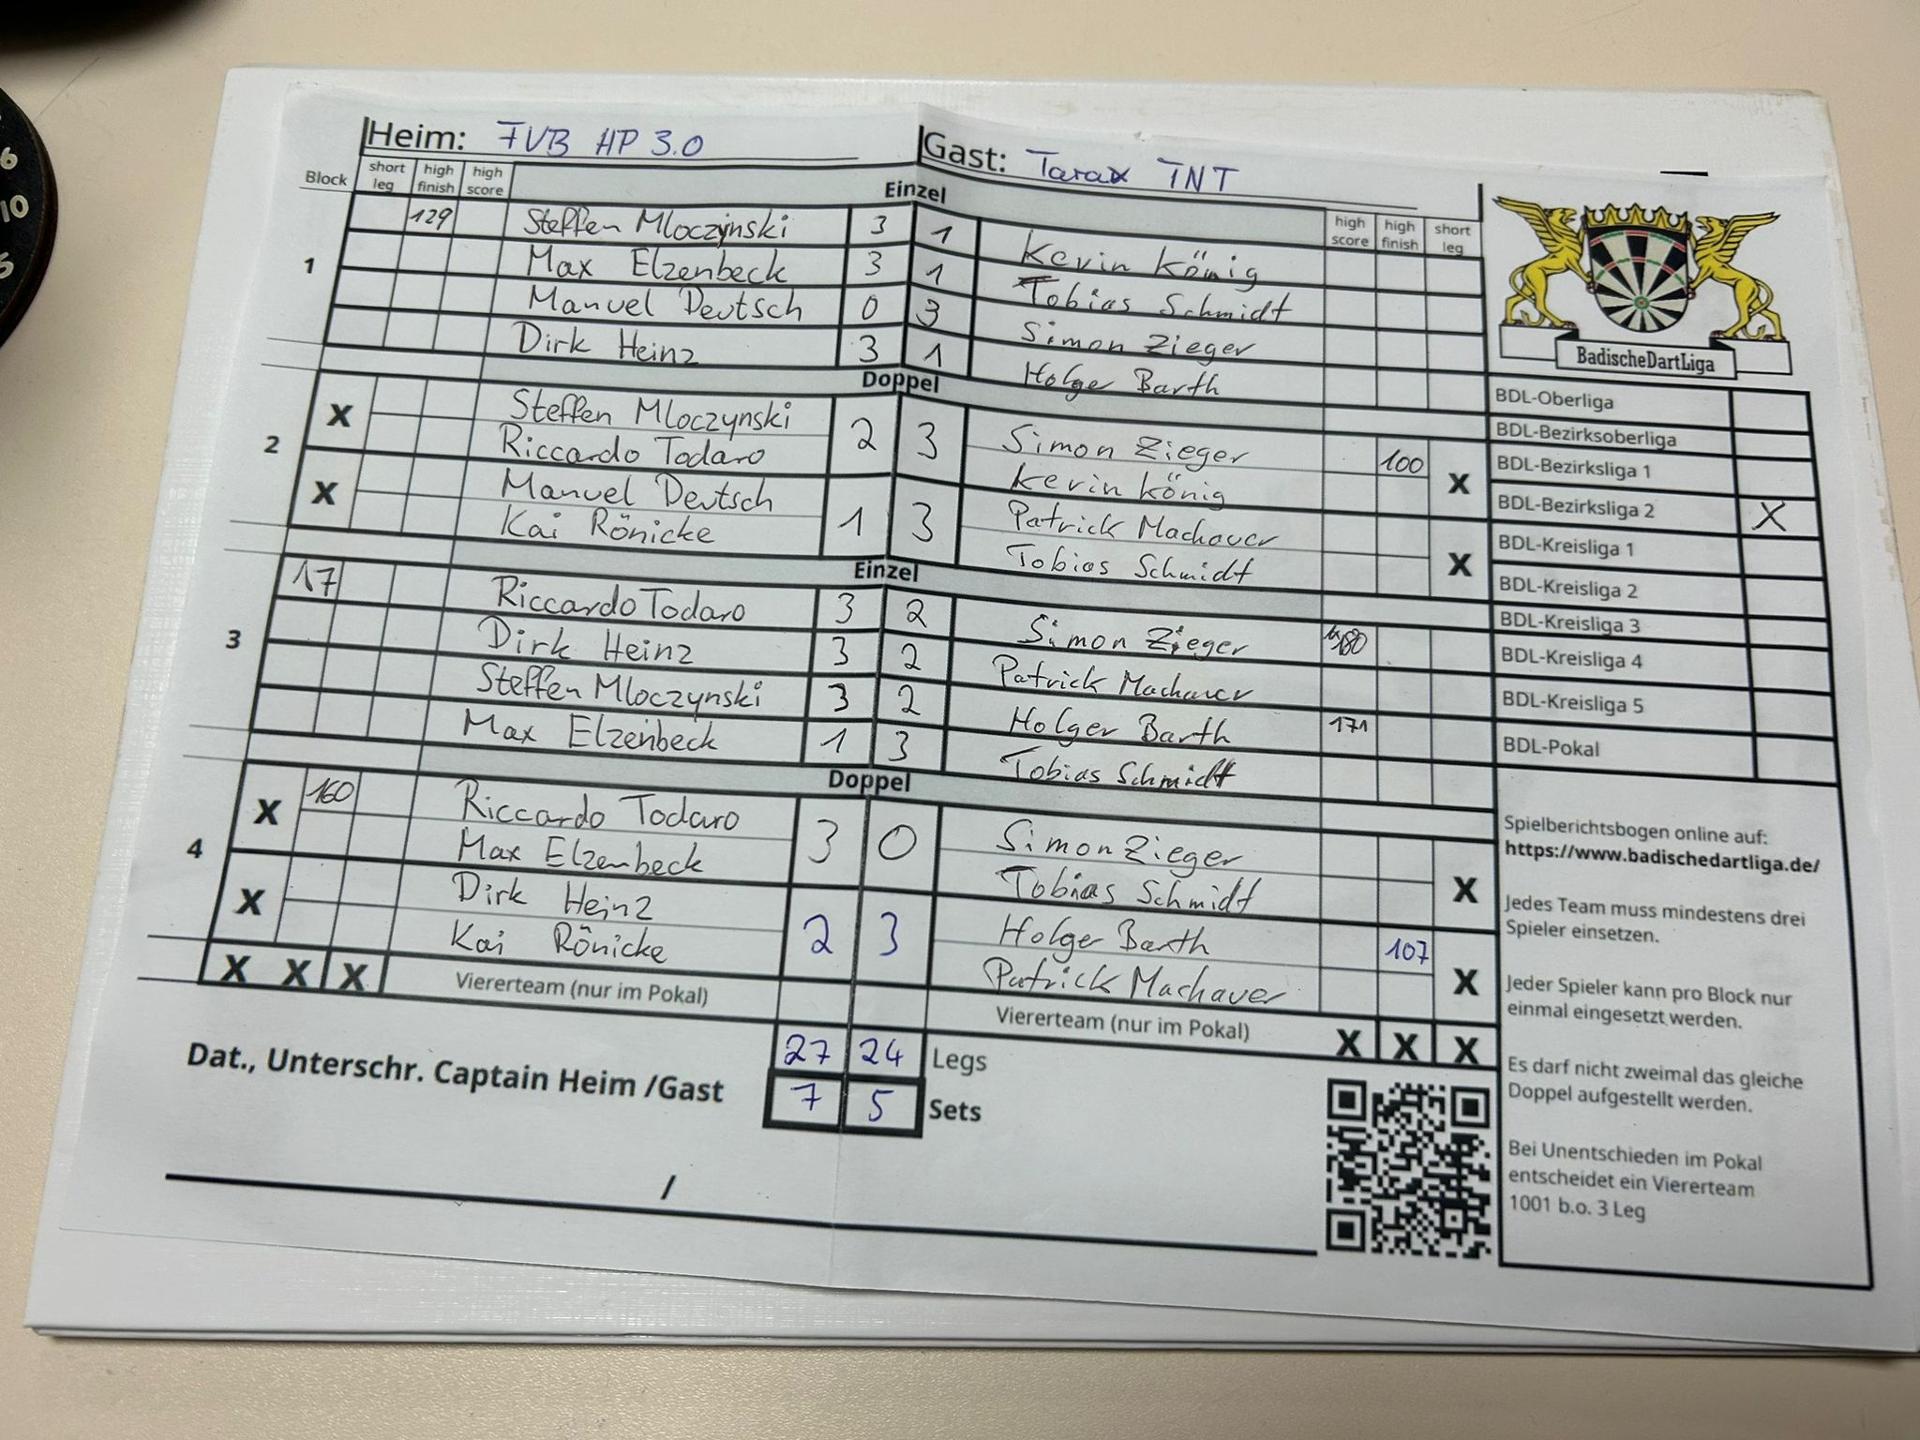 Heim: FVB HP 3.0
Gast: Tarax TNT
Block short leg high finish high score Einzel high score high finish short leg
1
129 Steffen Mloczynski 3 1 Kevin König
Max Elzenbeck 3 1 Tobias Schmidt
Manuel Deutsch 0 3 Simon Zieger
Dirk Heinz 3 1 Holger Barth
Doppel
2
X Steffen Mloczynski 2 3 Simon Zieger 100 X
Riccardo Todaro Kevin König
X Manuel Deutsch 1 3 Patrick Machauer X
Kai Rönicke Tobias Schmidt
Einzel
3
17 Riccardo Todaro 3 2 Simon Zieger 180
Dirk Heinz 3 2 Patrick Machauer
Steffen Mloczynski 3 2 Holger Barth 171
Max Elzenbeck 1 3 Tobias Schmidt
Doppel
4
X 160 Riccardo Todaro 3 0 Simon Zieger X
Max Elzenbeck Tobias Schmidt
X Dirk Heinz 2 3 Holger Barth 107 X
Kai Rönicke Patrick Machauer
X X X Viererteam (nur im Pokal) Viererteam (nur im Pokal) X X X
27 24 Legs
Dat., Unterschr. Captain Heim /Gast
7 5 Sets
/
BadischeDartLiga
BDL-Oberliga
BDL-Bezirksoberliga
BDL-Bezirksliga 1
BDL-Bezirksliga 2 X
BDL-Kreisliga 1
BDL-Kreisliga 2
BDL-Kreisliga 3
BDL-Kreisliga 4
BDL-Kreisliga 5
BDL-Pokal
Spielberichtsbogen online auf:
https://www.badischedartliga.de/
Jedes Team muss mindestens drei
Spieler einsetzen.
Jeder Spieler kann pro Block nur
einmal eingesetzt werden.
Es darf nicht zweimal das gleiche
Doppel aufgestellt werden.
Bei Unentschieden im Pokal
entscheidet ein Viererteam
1001 b.o. 3 Leg
6
10